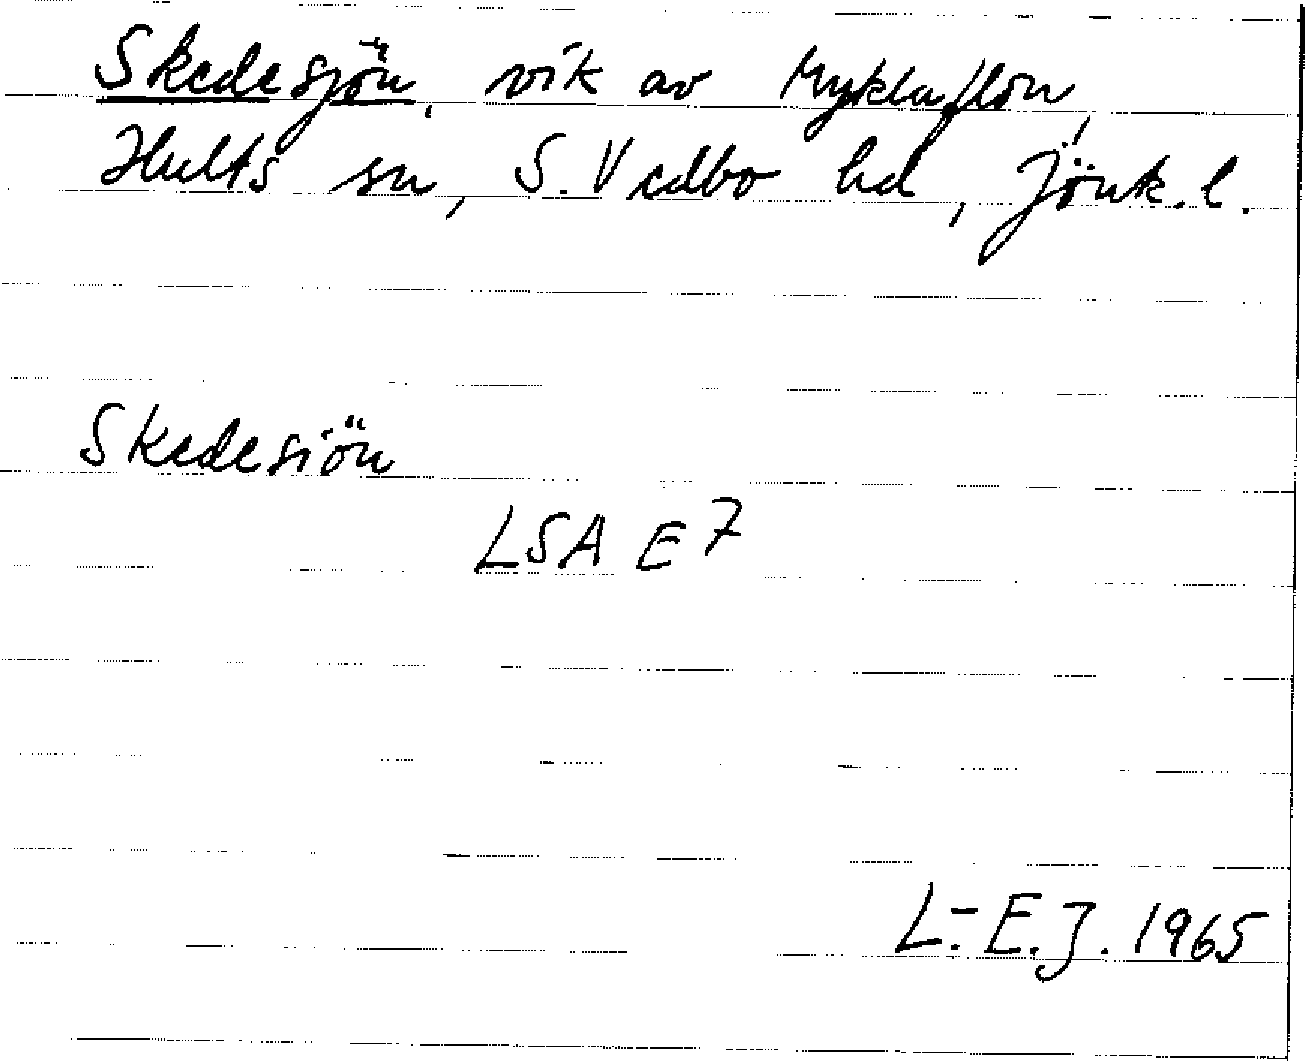 Skedesjön, vik av Mycklaflon,
Hults sn, S. Vedbo hd, Jönk. l.
Skedesiön
LSA E7
L.-E.J. 1965